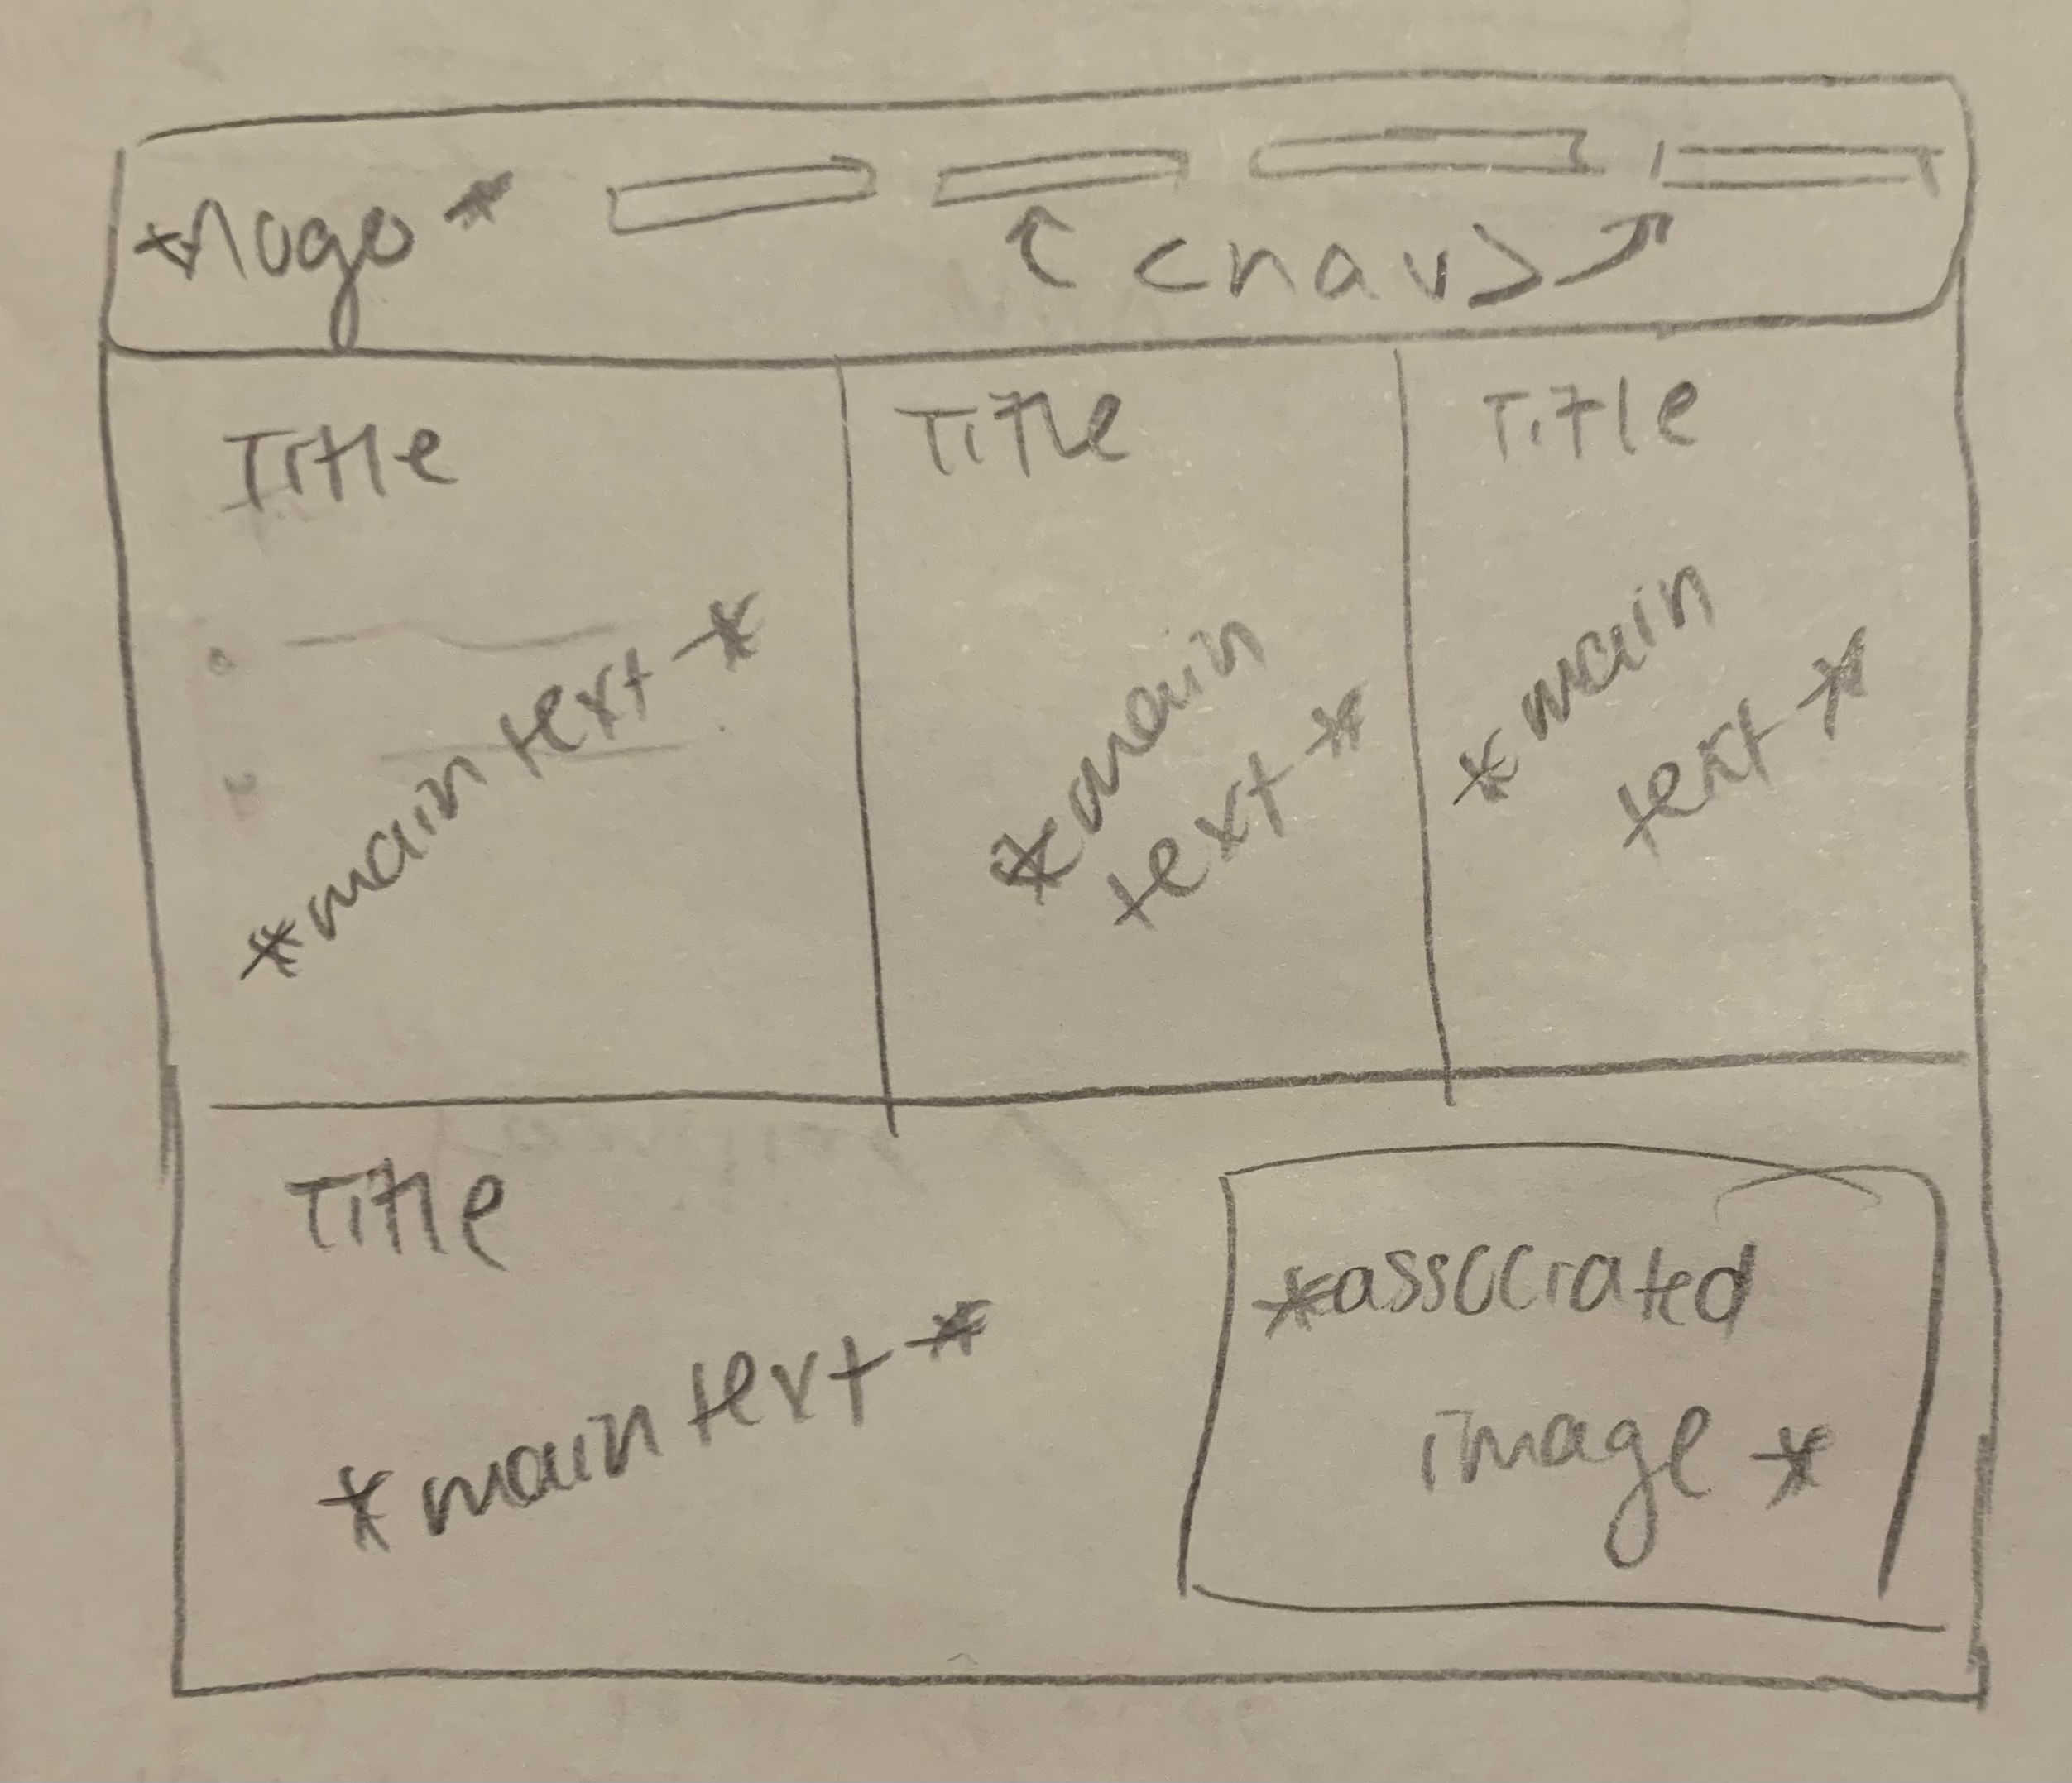 *logo*
<nav>
Title
*main text*
Title
*main
text*
Title
*main
text*
Title
*main text*
*associated
image*